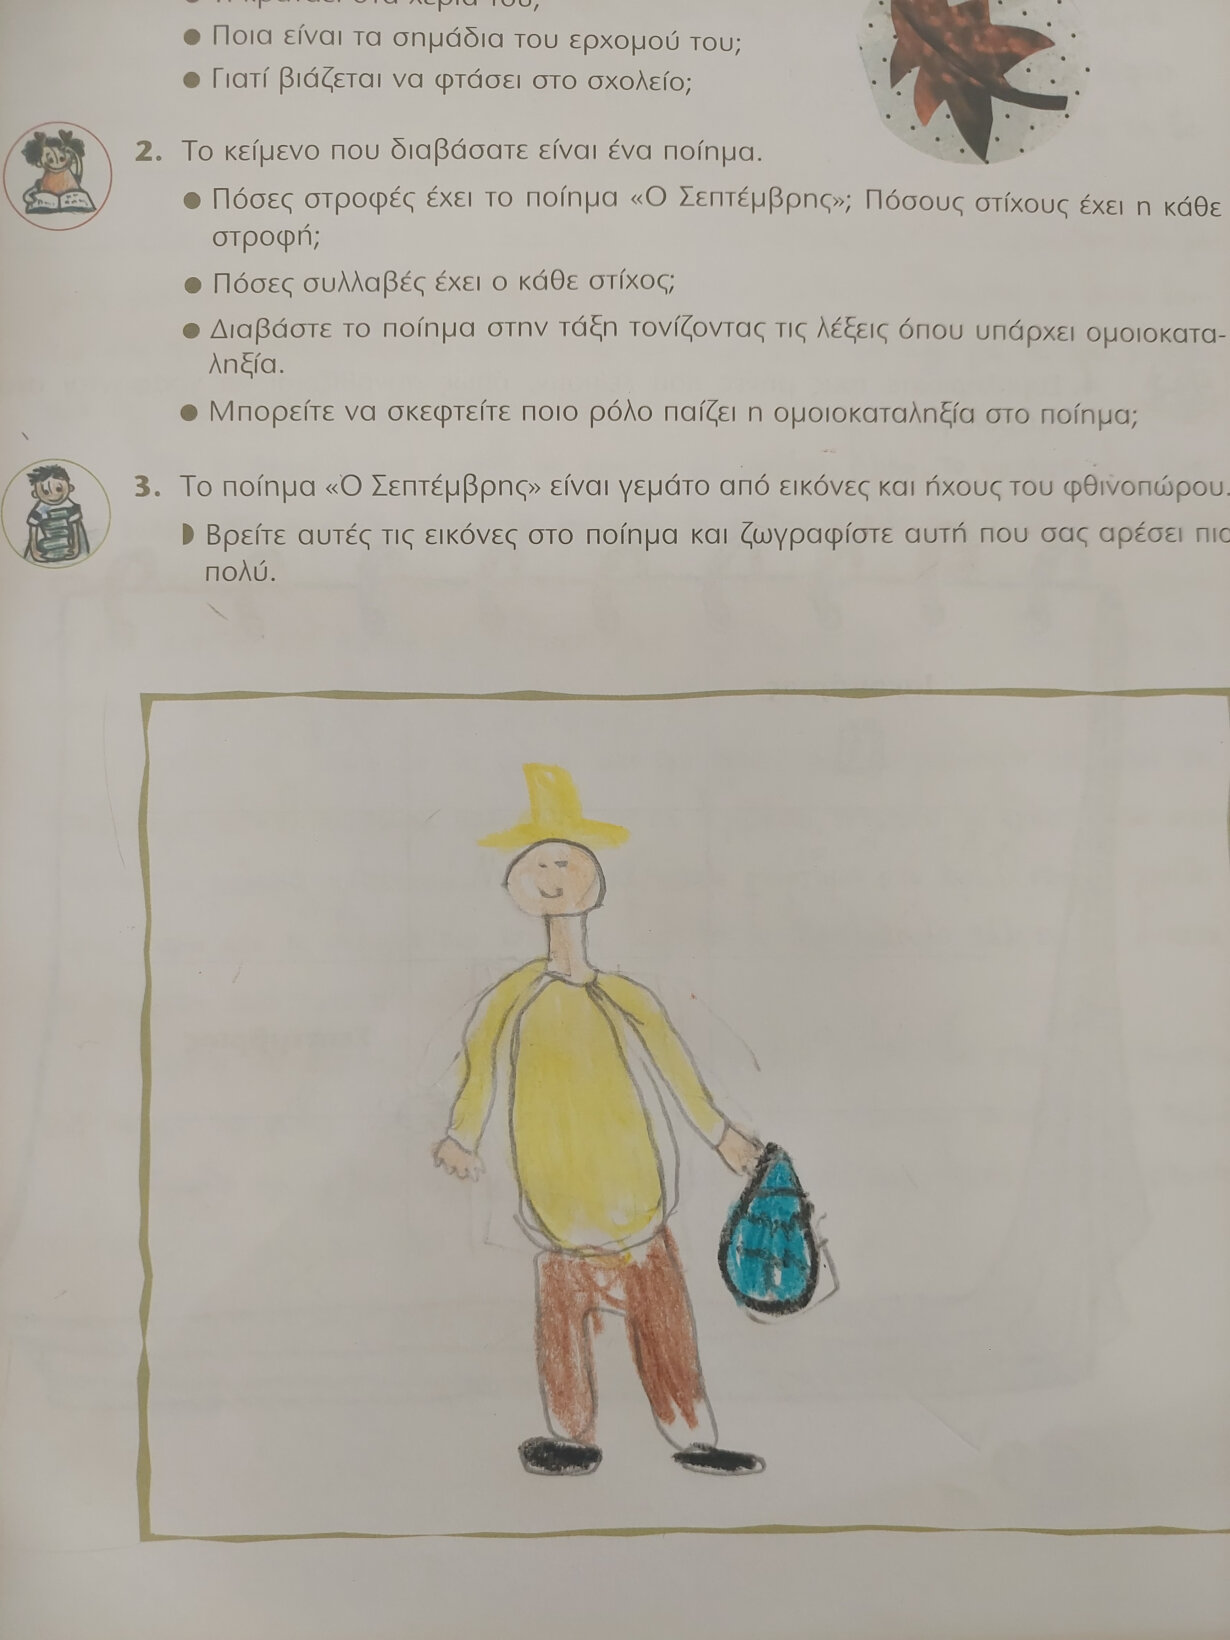 Τι κρατάει στα χέρια του;
● Ποια είναι τα σημάδια του ερχομού του;
● Γιατί βιάζεται να φτάσει στο σχολείο;
2. Το κείμενο που διαβάσατε είναι ένα ποίημα.
● Πόσες στροφές έχει το ποίημα «Ο Σεπτέμβρης»; Πόσους στίχους έχει η κάθε
στροφή;
● Πόσες συλλαβές έχει ο κάθε στίχος;
● Διαβάστε το ποίημα στην τάξη τονίζοντας τις λέξεις όπου υπάρχει ομοιοκατα-
ληξία.
● Μπορείτε να σκεφτείτε ποιο ρόλο παίζει η ομοιοκαταληξία στο ποίημα;
3. Το ποίημα «Ο Σεπτέμβρης» είναι γεμάτο από εικόνες και ήχους του φθινοπώρου.
Βρείτε αυτές τις εικόνες στο ποίημα και ζωγραφίστε αυτή που σας αρέσει πιο
πολύ.